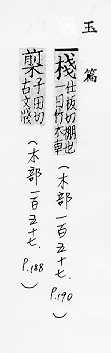 玉篇
棧
仕板切棚也
一曰竹木車
(木部一百五十七. P.190)
子田切
古文牋
(木部一百五十七. P.188)